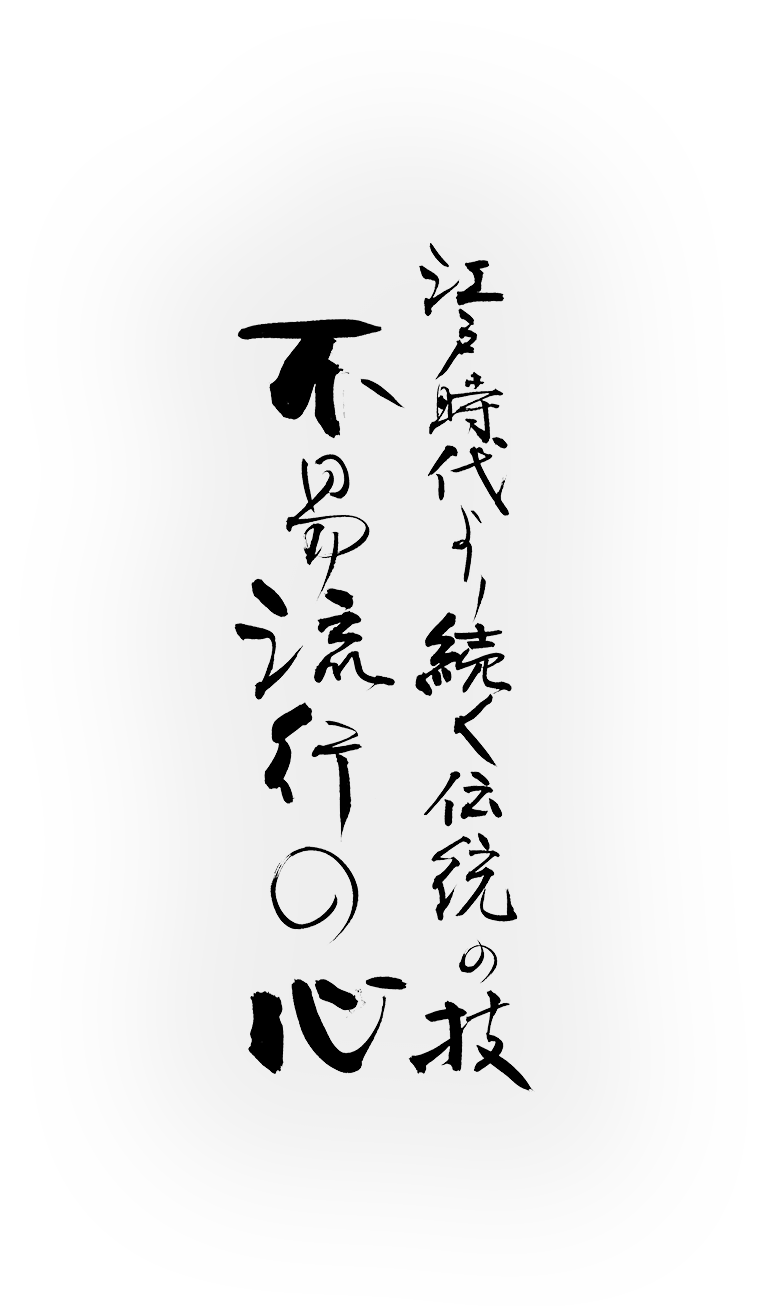 江戸時代より続く伝統の技
不易流行の心